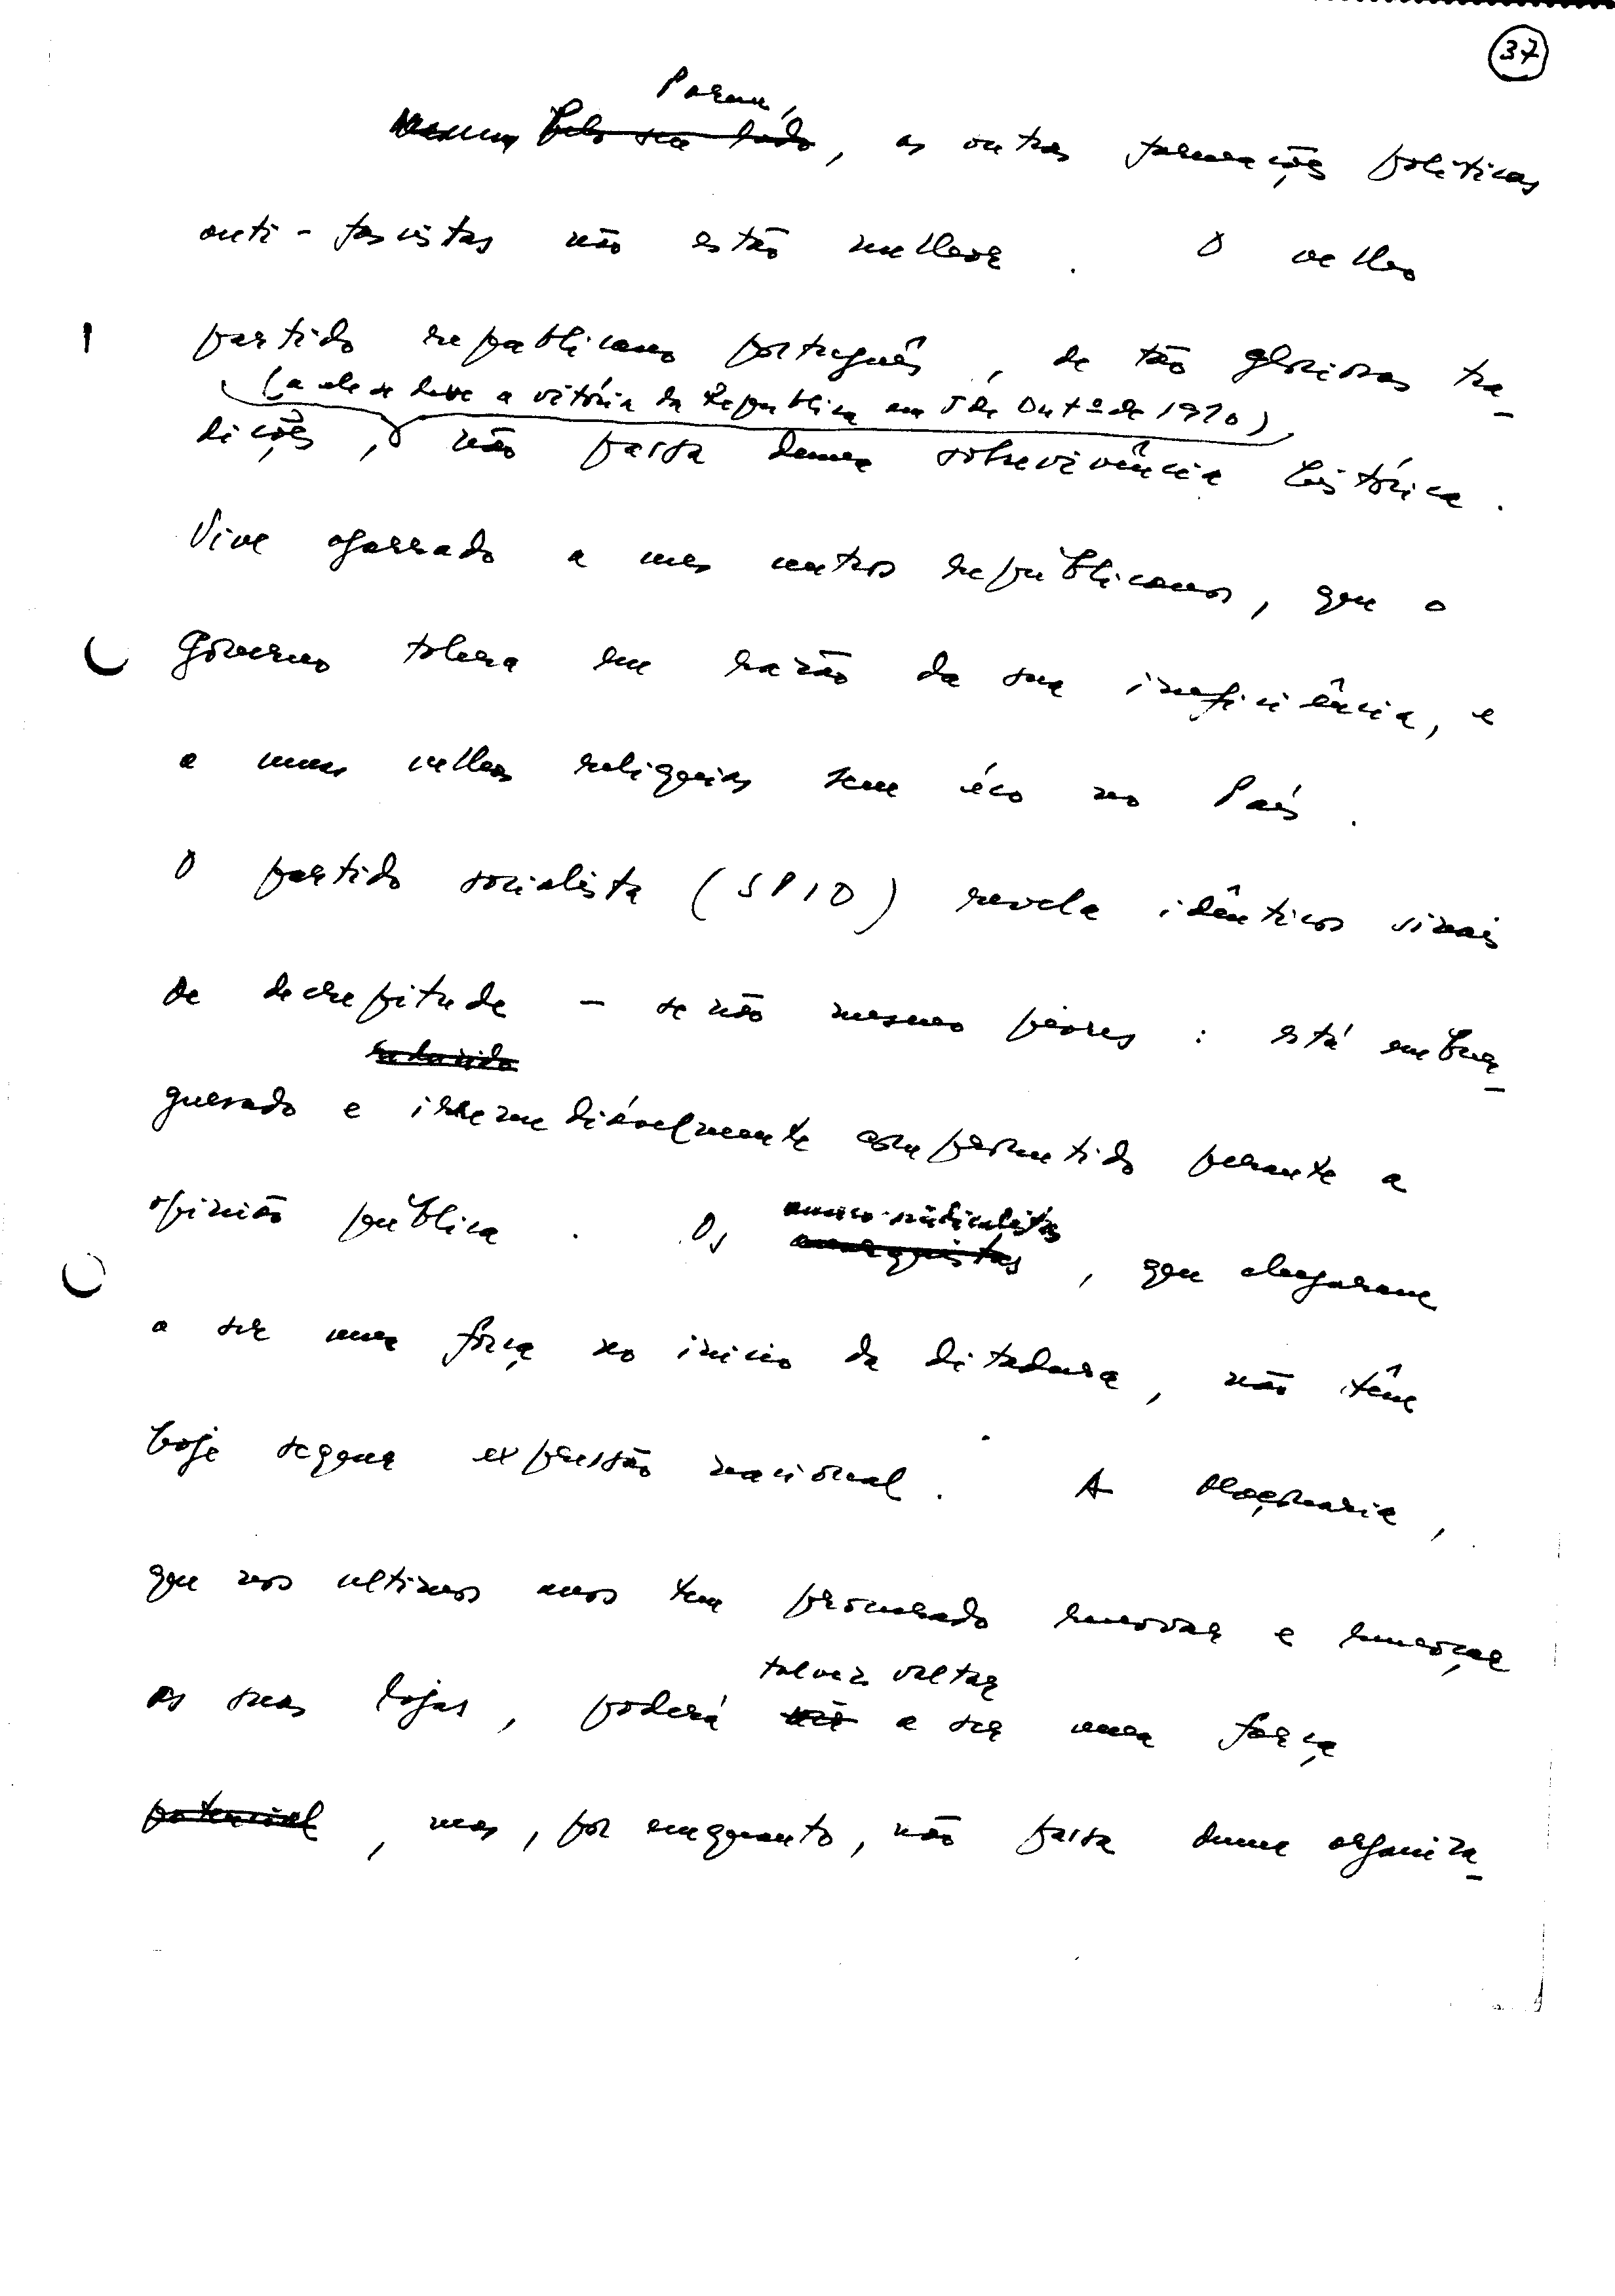 37
Porem,
~~Pelo seu lado~~, as outras formações politicas
anti-fascistas não estão melhor. O velho
partido republicano português, de tão gloriosas tra-
(a ele se deve a vitória da Republica em 5 de Outº de 1910),
dições, não passa duma sobrevivência histórica.
Vive agarrado a uns centros republicanos, que o
Governo tolera em razão da sua ineficiência, e
a umas velhas reliquias sem éco no País.
O partido socialista (SPIO) revela idênticos sinais
de decrepitude – se não mesmo piores: está embur-
guesado e irremediávelmente comprometido perante a
opinião pública. Os anarco-sindicalistas
~~anarquistas~~, que chegaram
a ser uma força no inicio da ditadura, não têm
hoje sequer expressão nacional. A Maçonaria,
que nos ultimos anos tem procurado renovar e
talvez voltar
as suas lojas, poderá a ser uma força
~~potencial~~, mas, por emquanto, não passa duma organiza-